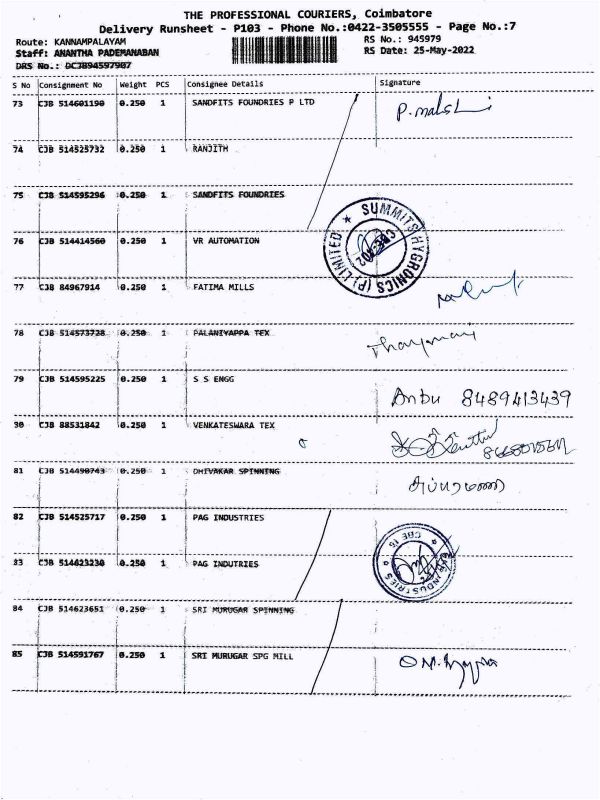 THE PROFESSIONAL COURIERS, Coimbatore
Delivery Runsheet - P103 - Phone No.:0422-3505555 - Page No.:7
Route: KANNAMPALAYAM RS No.: 945979
Staff: ANANTHA PADEMANABAN RS Date: 25-May-2022
DRS No.: DCJB94597907
S No Consignment No Weight PCS Consignee Details Signature
73 CJB 514601190 0.250 1 SANDFITS FOUNDRIES P LTD
74 CJB 514525732 0.250 1 RANJITH
75 CJB 514595296 0.250 1 SANDFITS FOUNDRIES
SUMMITS HYGRONICS (P) LIMITED
76 CJB 514414560 0.250 1 VR AUTOMATION
77 CJB 84967914 0.250 1 FATIMA MILLS
78 CJB 514573728 0.250 1 PALANIYAPPA TEX
79 CJB 514595225 0.250 1 S S ENGG Anbu 8489413439
80 CJB 88531842 0.250 1 VENKATESWARA TEX
81 CJB 514490743 0.250 1 DHIVAKAR SPINNING
82 CJB 514525717 0.250 1 PAG INDUSTRIES
83 CJB 514623230 0.250 1 PAG INDUTRIES
84 CJB 514623651 0.250 1 SRI MURUGAR SPINNING
85 CJB 514591767 0.250 1 SRI MURUGAR SPG MILL